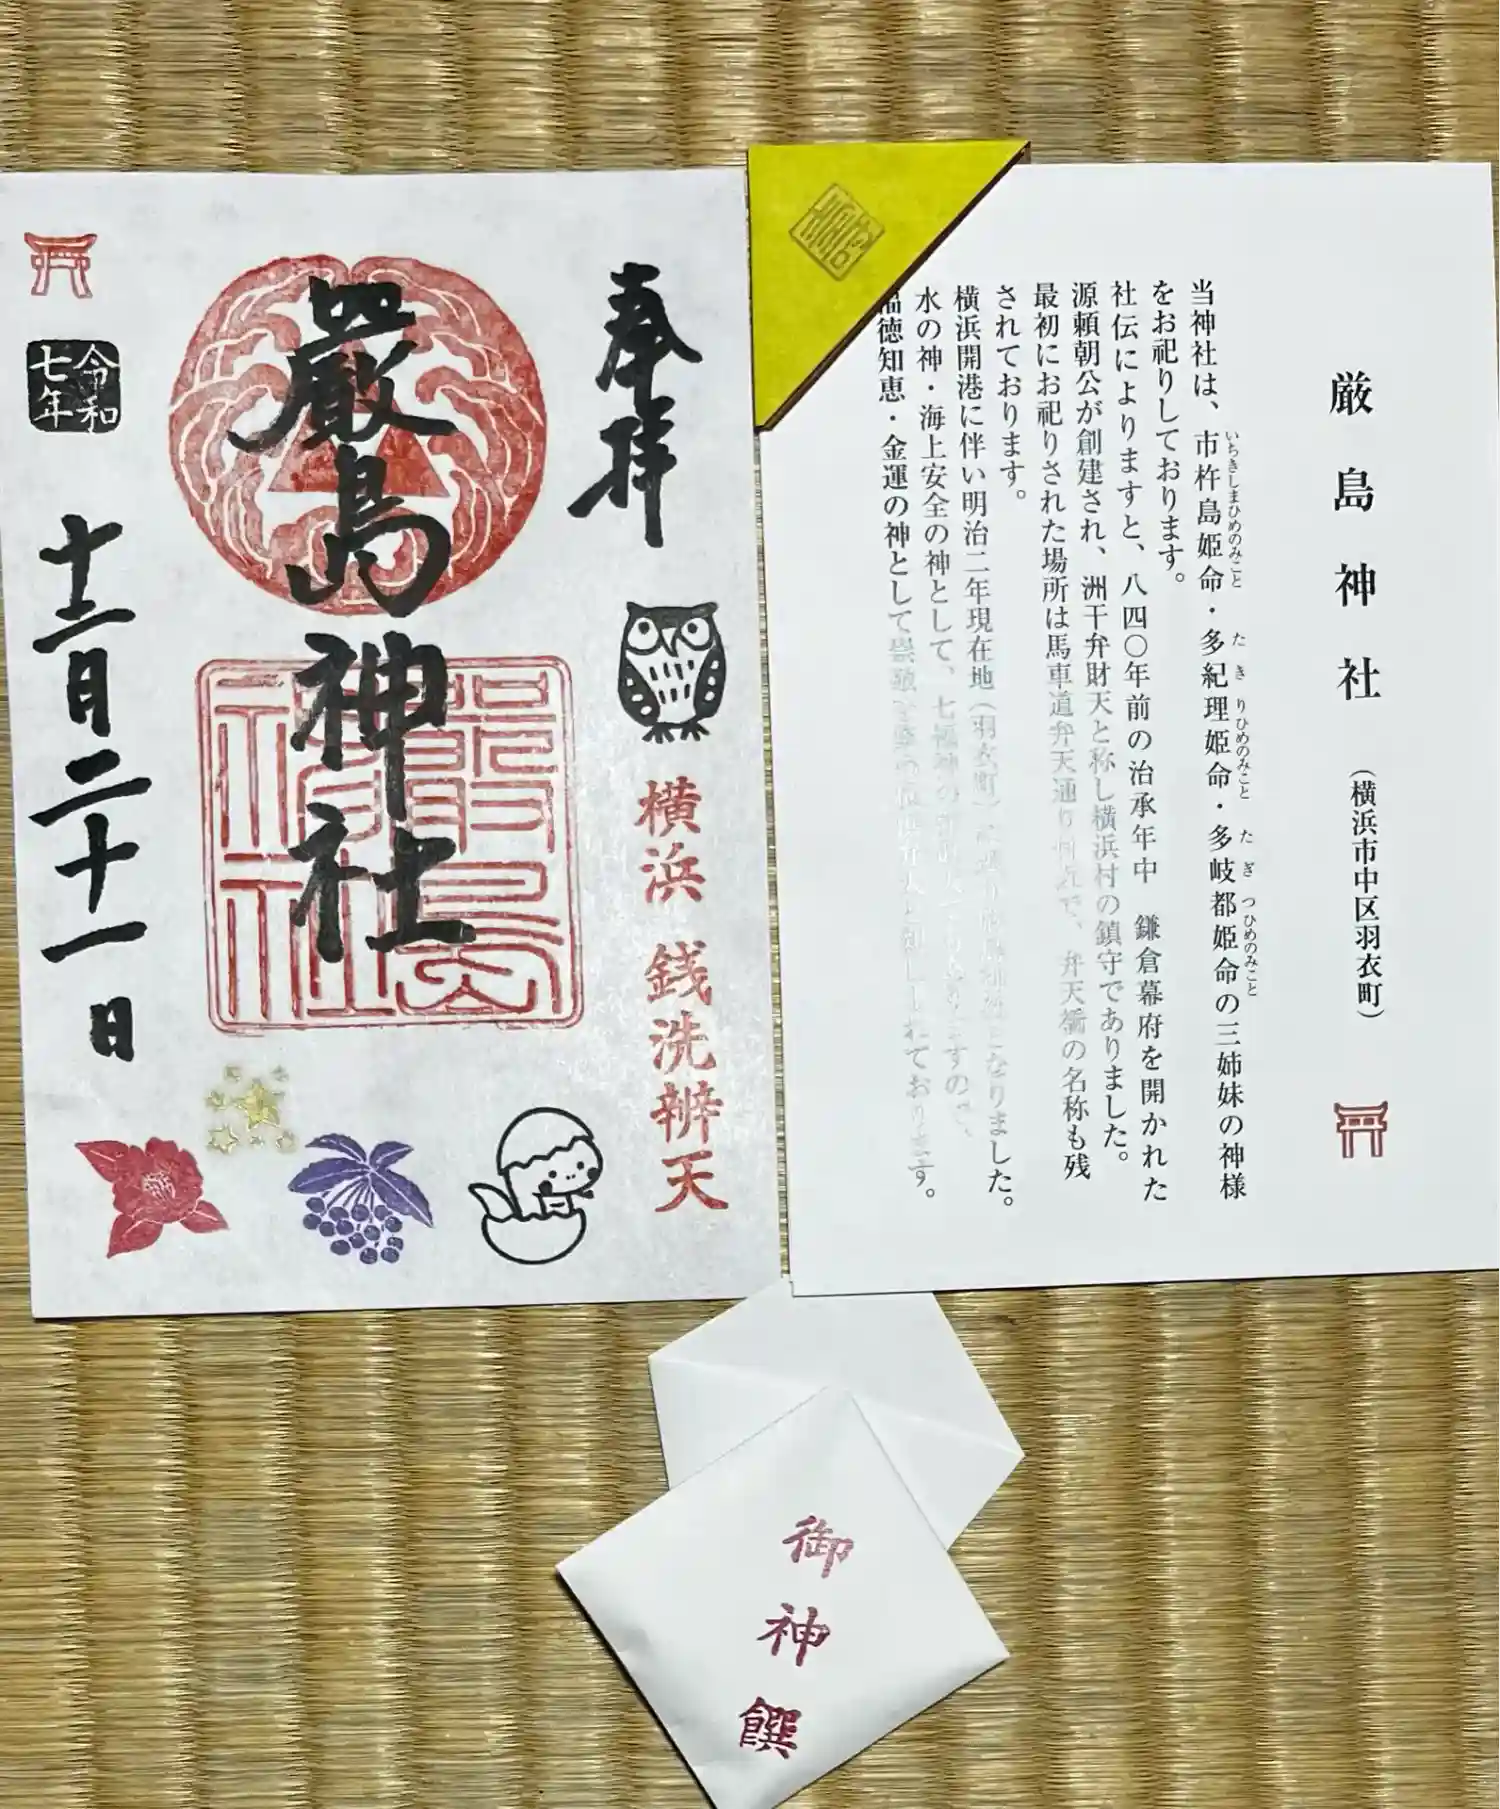 奉拝
横浜 銭洗辨天
嚴島神社
嚴島神社
令和七年
十二月二十一日
厳島神社 (横浜市中区羽衣町)
当神社は、市杵島姫命・多紀理姫命・多岐都姫命の三姉妹の神様
いちきしまひめのみこと たきりひめのみこと たぎつひめのみこと
をお祀りしております。
社伝によりますと、八四〇年前の治承年中 鎌倉幕府を開かれた
源頼朝公が創建され、洲干弁財天と称し横浜村の鎮守でありました。
最初にお祀りされた場所は馬車道弁天通り で、弁天橋の名称も残
されております。
横浜開港に伴い明治二年現在地(羽衣町) なりました。
水の神・海上安全の神として、七福神の すの 、
徳知恵・金運の神として崇敬 れております。
御神饌